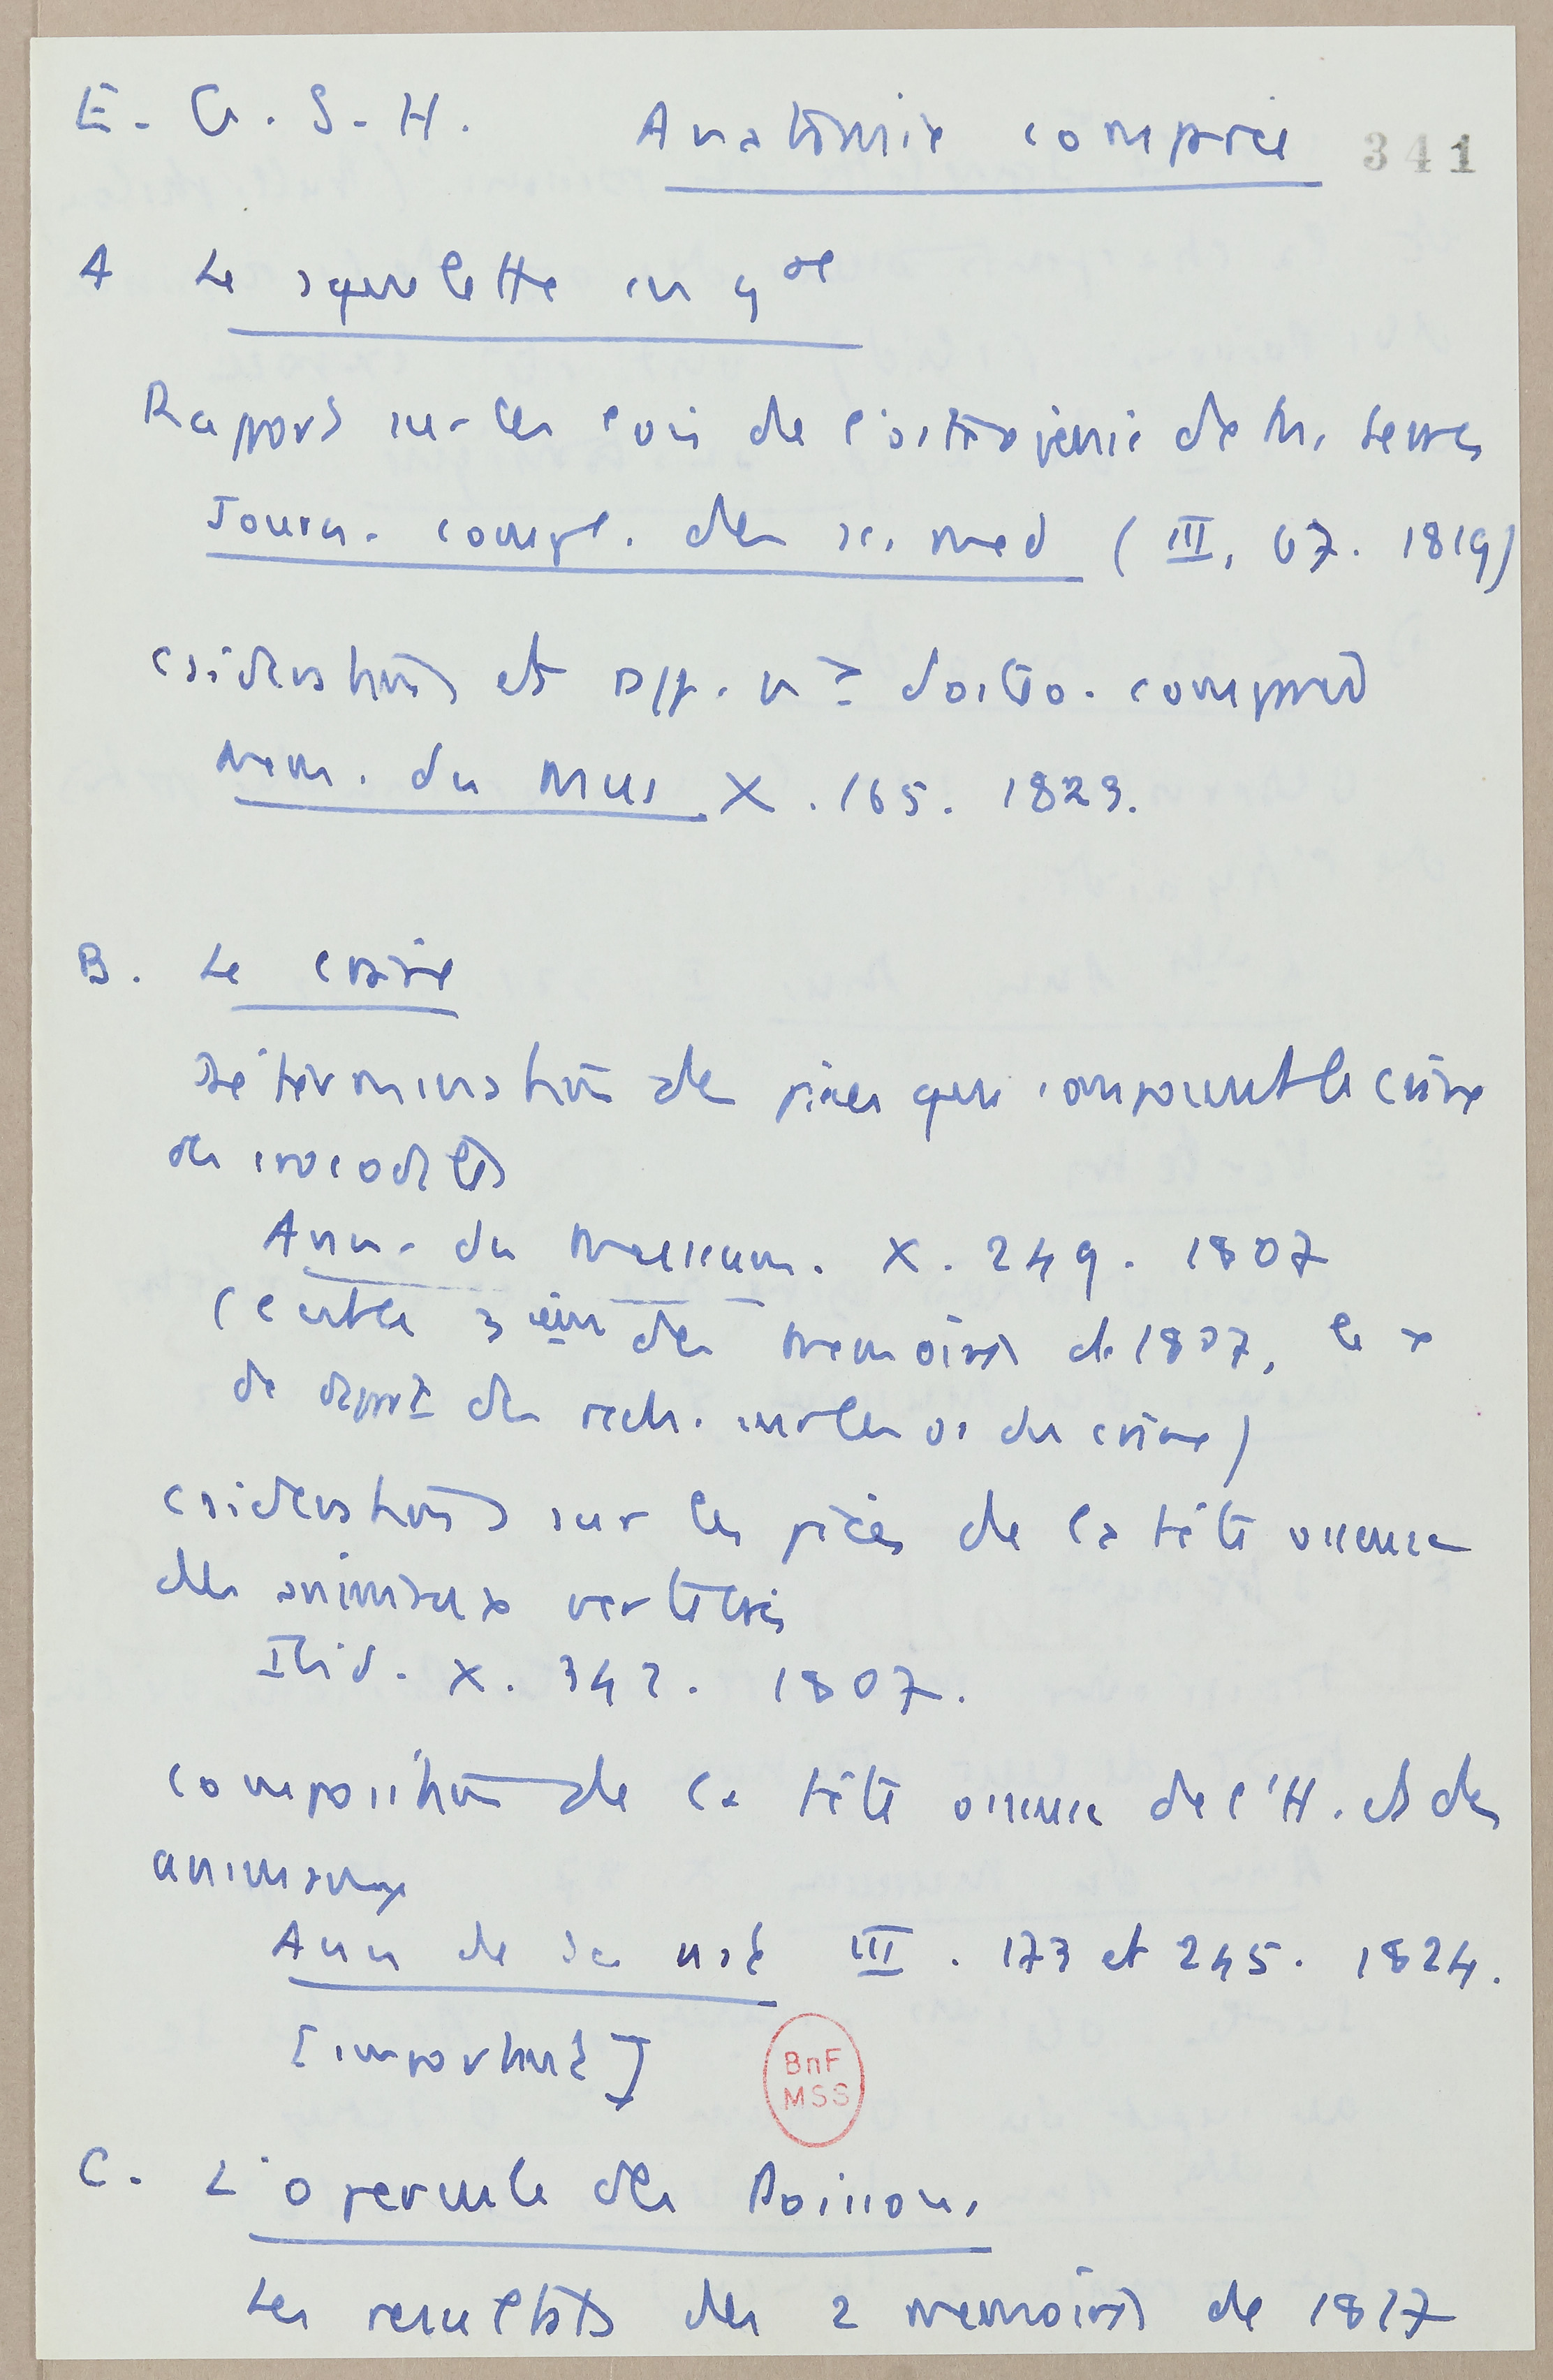 E. G. S-H. Anatomie comparée 341
A Le squelette en gal
Rapport sur les lois de l'ostéogénie de M. Serres
Journ. compl. des sc. med (III, 67. 1819)
csidérations et app. d'ostéo. comparée
Mem. du Mus X. 165. 1823.
B. Le crâne
Détermination des pièces qui composent le crâne
des crocodiles
Ann. du Museum. X. 249. 1807
(C'est le 3ème des memoires de 1807, le
de départ des rech. sur les os du crâne)
csidérations sur les pièces de la tête osseuse
des animaux vertébrés
Ibid. X. 342. 1807.
composition de la tête osseuse de l'H. et des
animaux
Ann de sc nat III. 173 et 245. 1824.
[important]
BnF
MSS
C. L'opercule des Poissons
Les resultats des 2 memoires de 1817